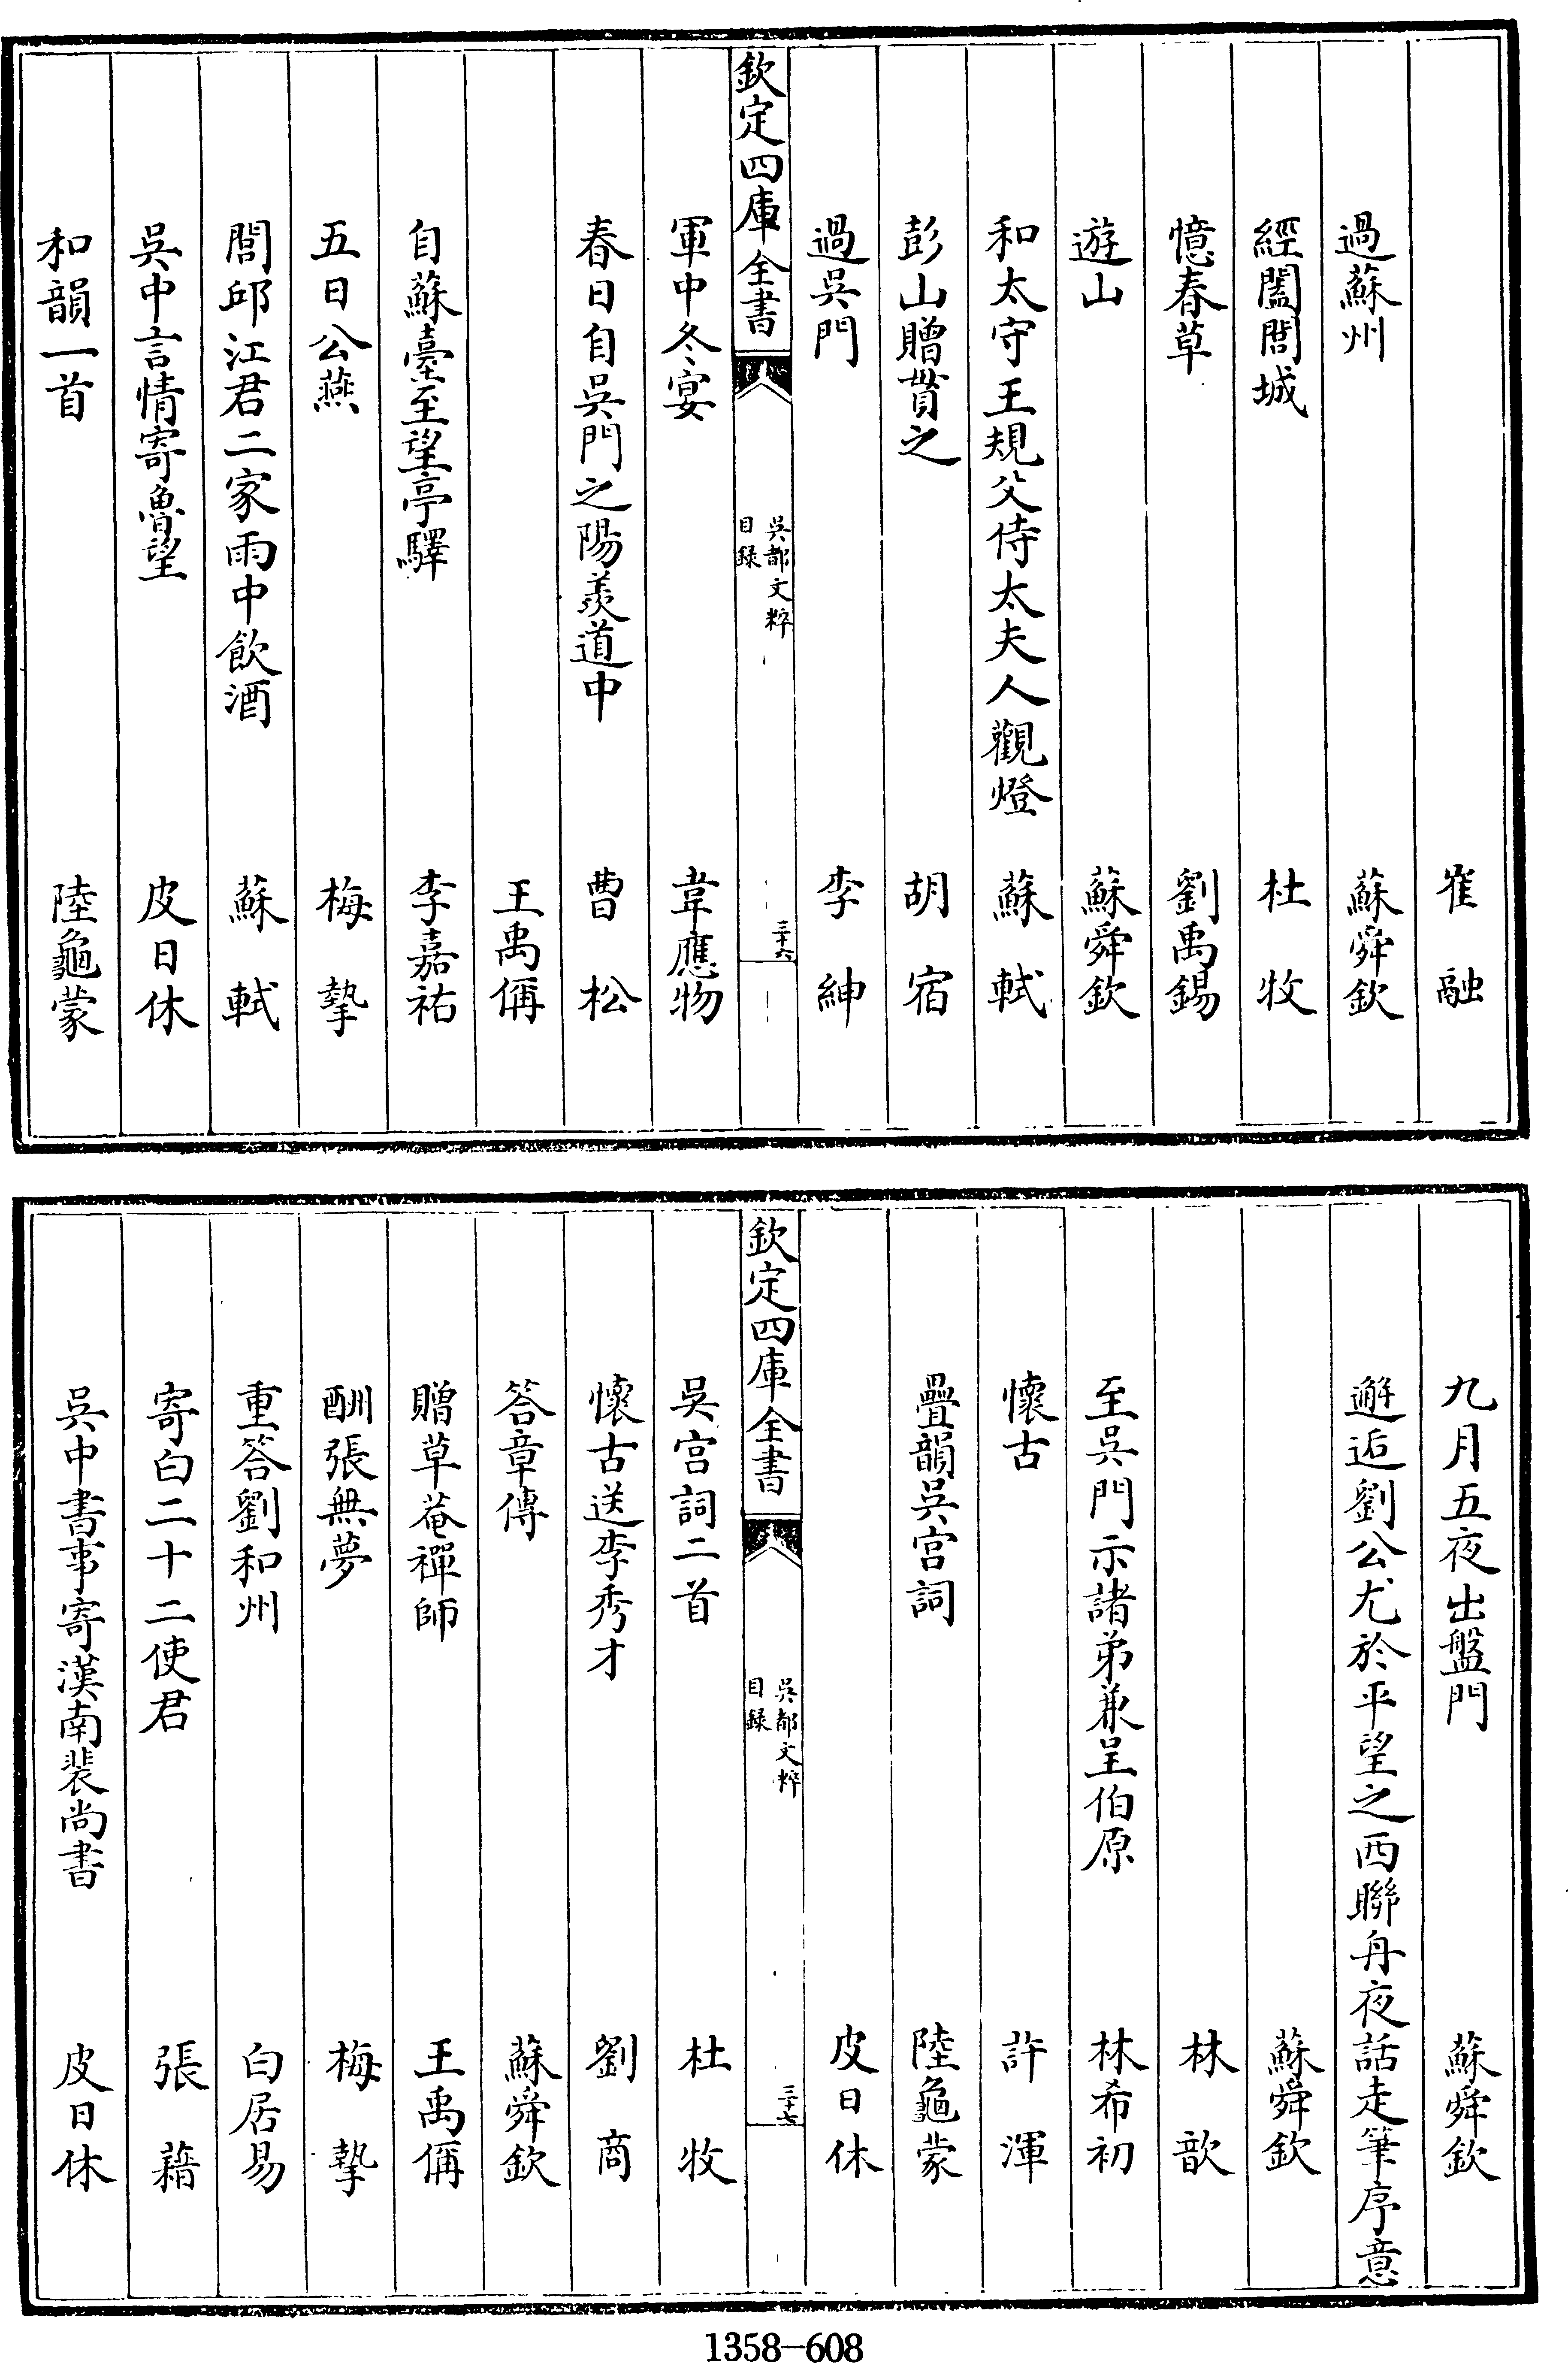 崔融
過蘇州 蘇舜欽
經闔閭城 杜牧
憶春草 劉禹錫
遊山 蘇舜欽
和太守王規父侍太夫人觀燈 蘇軾
彭山贈貫之 胡宿
過吳門 李紳
欽定四庫全書 吳都文粹目録 三十六
軍中冬宴 韋應物
春日自吳門之陽羨道中 曹松
王禹偁
自蘇臺至望亭驛 李嘉祐
五日公燕 梅摯
閭邱江君二家雨中飲酒 蘇軾
吳中言情寄魯望 皮日休
和韻一首 陸龜蒙
九月五夜出盤門 蘇舜欽
邂逅劉公尤於平望之西聯舟夜話走筆序意
蘇舜欽
林歆
至吳門示諸弟兼呈伯原 林希初
懷古 許渾
疊韻吳宫詞 陸龜蒙
皮日休
欽定四庫全書 吳都文粹目録 三十七
吳宫詞二首 杜牧
懷古送李秀才 劉商
答章傳 蘇舜欽
贈草菴禪師 王禹偁
酬張無夢 梅摯
重答劉和州 白居易
寄白二十二使君 張藉
吳中書事寄漢南裴尚書 皮日休
1358-608